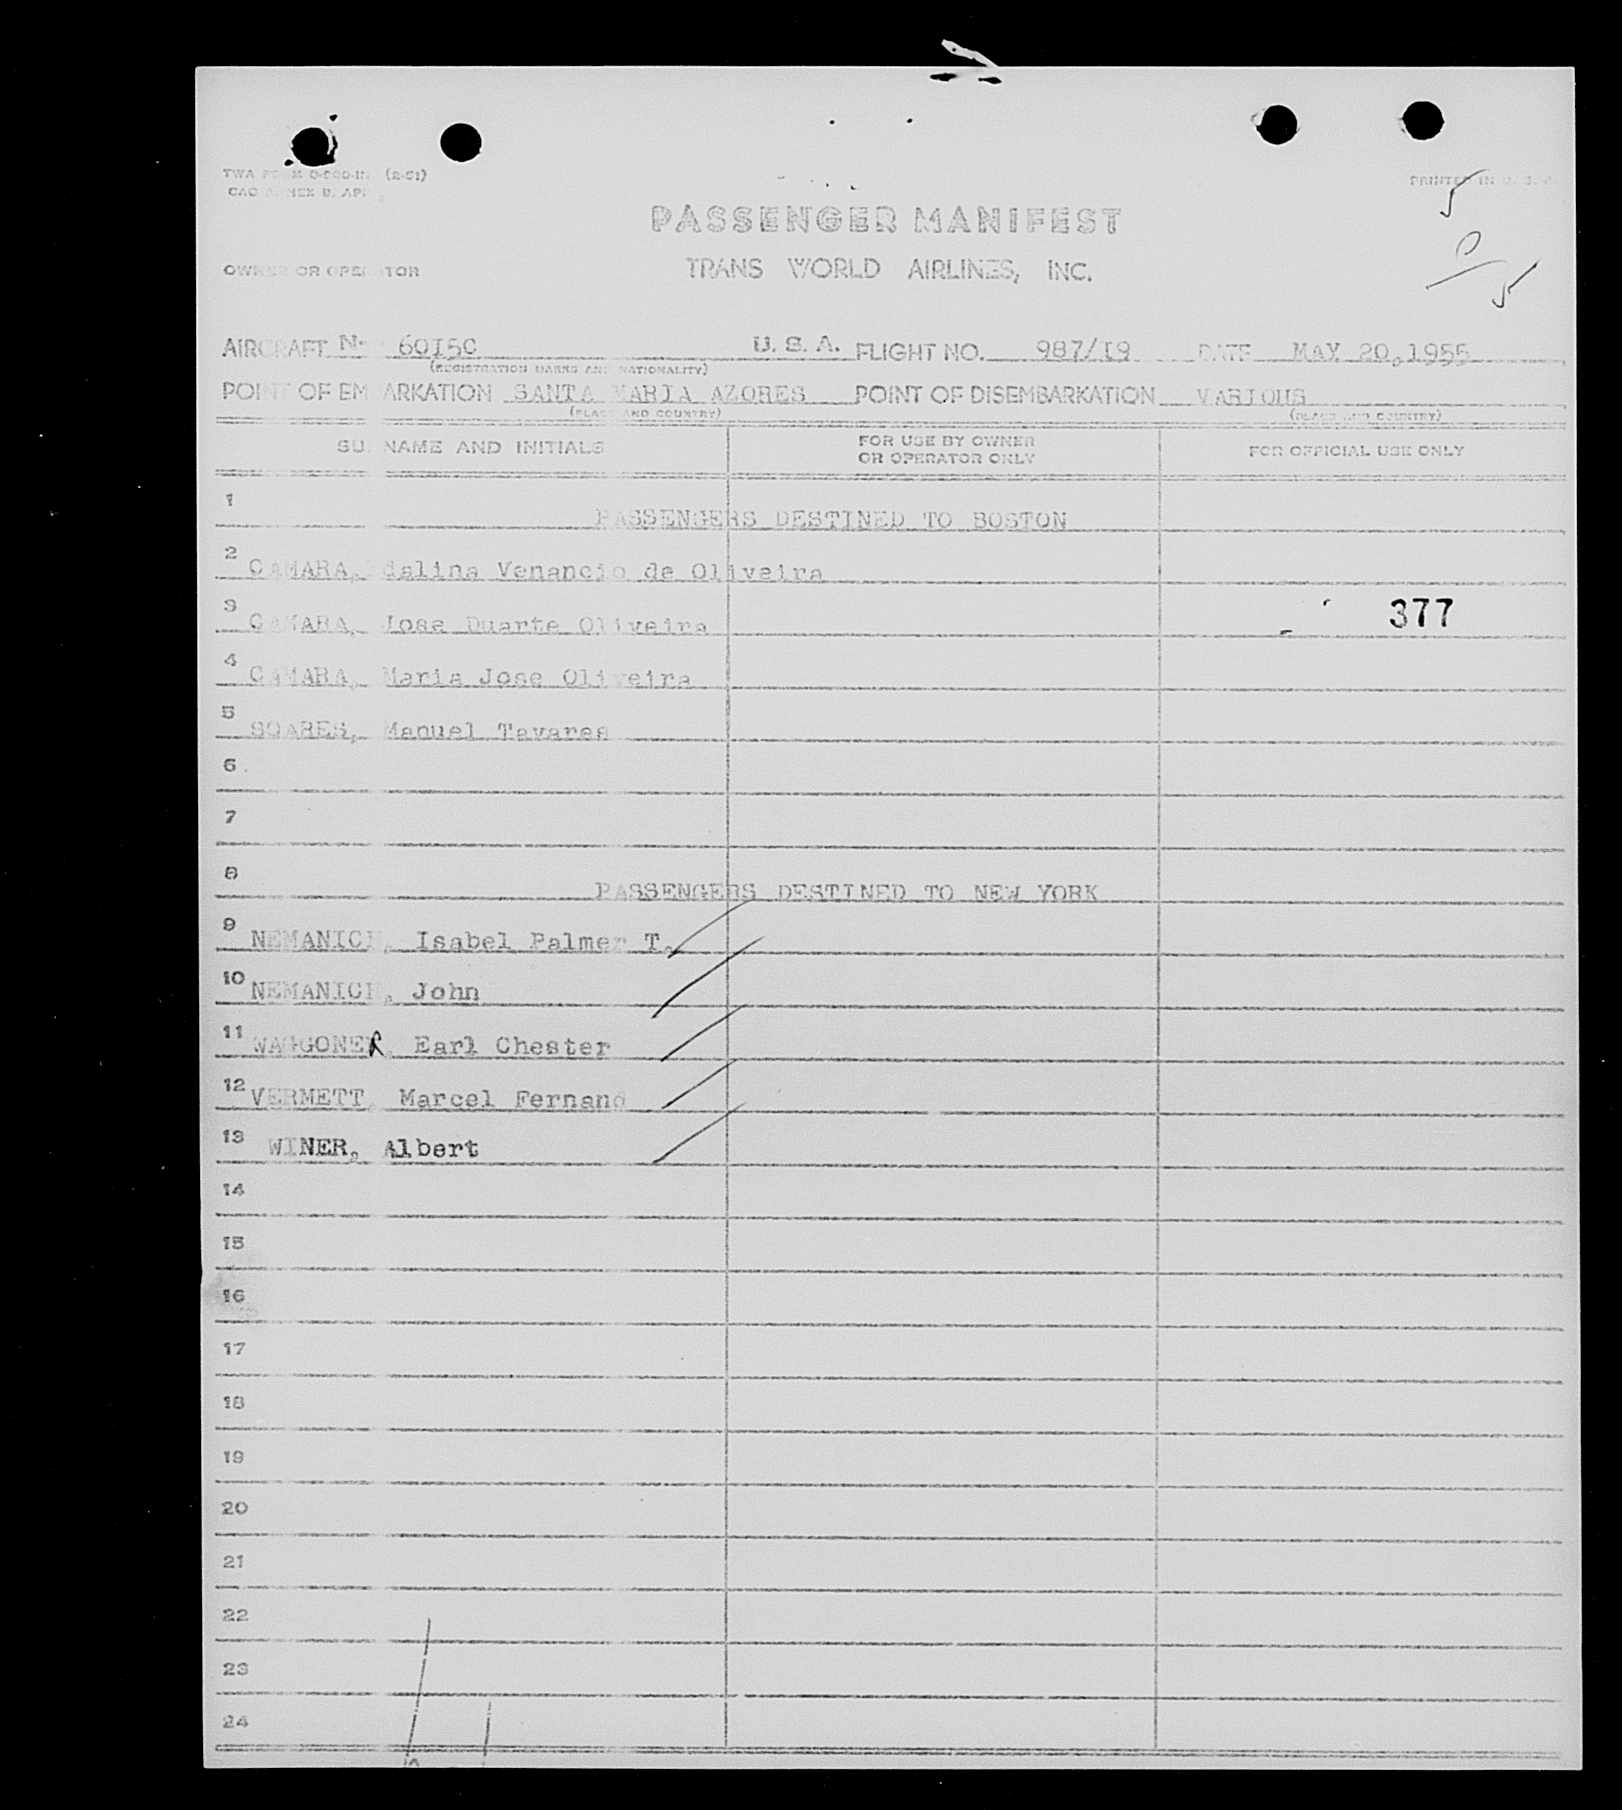 TWA FORM (2-51)
PRINTED IN U. S. A.
5
PASSENGER MANIFEST
0
OWNER OR OPERATOR TRANS WORLD AIRLINES, INC.
5
AIRCRAFT N- 6015C U. S. A. FLIGHT NO. 987/19 DATE MAY 20,1955
(REGISTRATION MARKS AND NATIONALITY)
POINT OF EMBARKATION SANTA MARIA AZORES POINT OF DISEMBARKATION VARIOUS
(PLACE AND COUNTRY) (PLACE AND COUNTRY)
SURNAME AND INITIALS FOR USE BY OWNER OR OPERATOR ONLY FOR OFFICIAL USE ONLY
1 PASSENGERS DESTINED TO BOSTON
2 CAMARA, dalina Venancio de Oliveira
3 CAMARA, Jose Duarte Oliveira 377
4 CAMARA, Maria Jose Oliveira
5 SOARES, Manuel Tavares
6
7
8 PASSENGERS DESTINED TO NEW YORK
9 NEMANICH, Isabel Palmer T.
10 NEMANICH, John
11 WAGGONER Earl Chester
12 VERMETT, Marcel Fernand
13 WINER, Albert
14
15
16
17
18
19
20
21
22
23
24